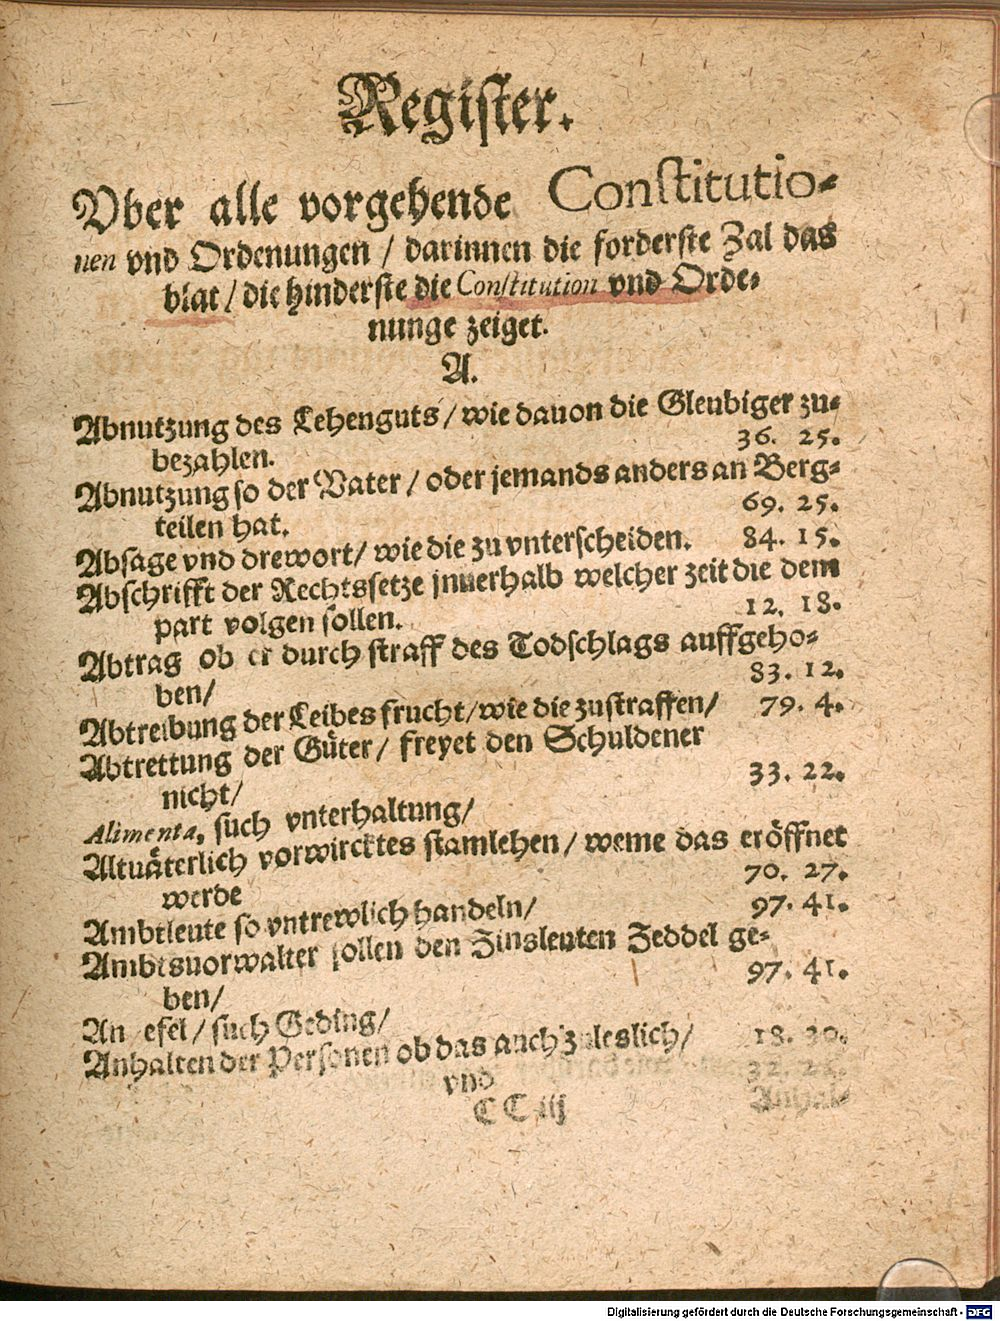 Register.
Vber alle vorgehende Constitutio-
nen vnd Ordenungen / darinnen die forderste Zal das
blat / die hinderste die Constitution vnd Orde-
nunge zeiget.
A.
Abnutzung des Lehenguts / wie dauon die Gleubiger zu-
bezahlen. 36. 25.
Abnutzung so der Vater / oder jemands anders an Berg-
teilen hat. 69. 25.
Absage vnd drewort / wie die zu vnterscheiden. 84. 15.
Abschrifft der Rechtssetze jnnerhalb welcher zeit die dem
part volgen sollen. 12. 18.
Abtrag ob er durch straff des Todschlags auffgeho-
ben / 83. 12.
Abtreibung der Leibes frucht / wie die zustraffen / 79. 4.
Abtrettung der Güter / freyet den Schuldener
nicht / 33. 22.
Alimenta, such vnterhaltung /
Altuäterlich vorwircktes stamlehen / weme das eröffnet
werde 70. 27.
Ambtleute so vntrewlich handeln / 97. 41.
Ambtsuorwalter sollen den Zinsleuten Zeddel ge-
ben / 97. 41.
An efel / such Geding /
Anhalten der Personen ob das auch zuleslich / 18. 20.
vnd 32. 22.
CC iij Anhal-
Digitalisierung gefördert durch die Deutsche Forschungsgemeinschaft - DFG